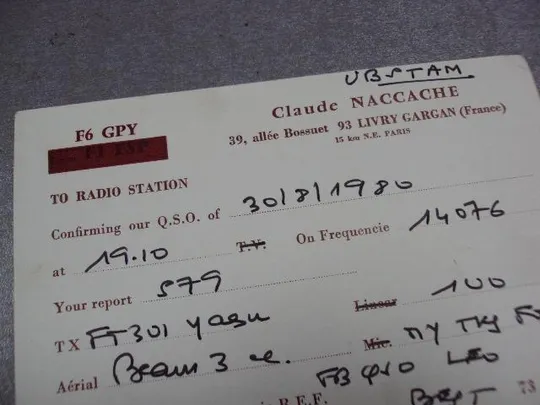 UB5TAM
F6 GPY
Claude NACCACHE
39, allée Bossuet 93 LIVRY GARGAN (France)
15 km N.E. PARIS
TO RADIO STATION
Confirming our Q.S.O. of 30/8/1980
at 19.10 T.V. On Frequencie 14076
Your report 579
TX FT301 yaesu Linear 100
Aérial Beam 3 el. Mic. MY TKS
FB QSO LEO
R.E.F. BEST 73